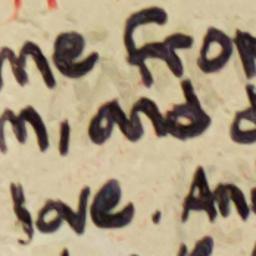 me fro
m, and
love. An